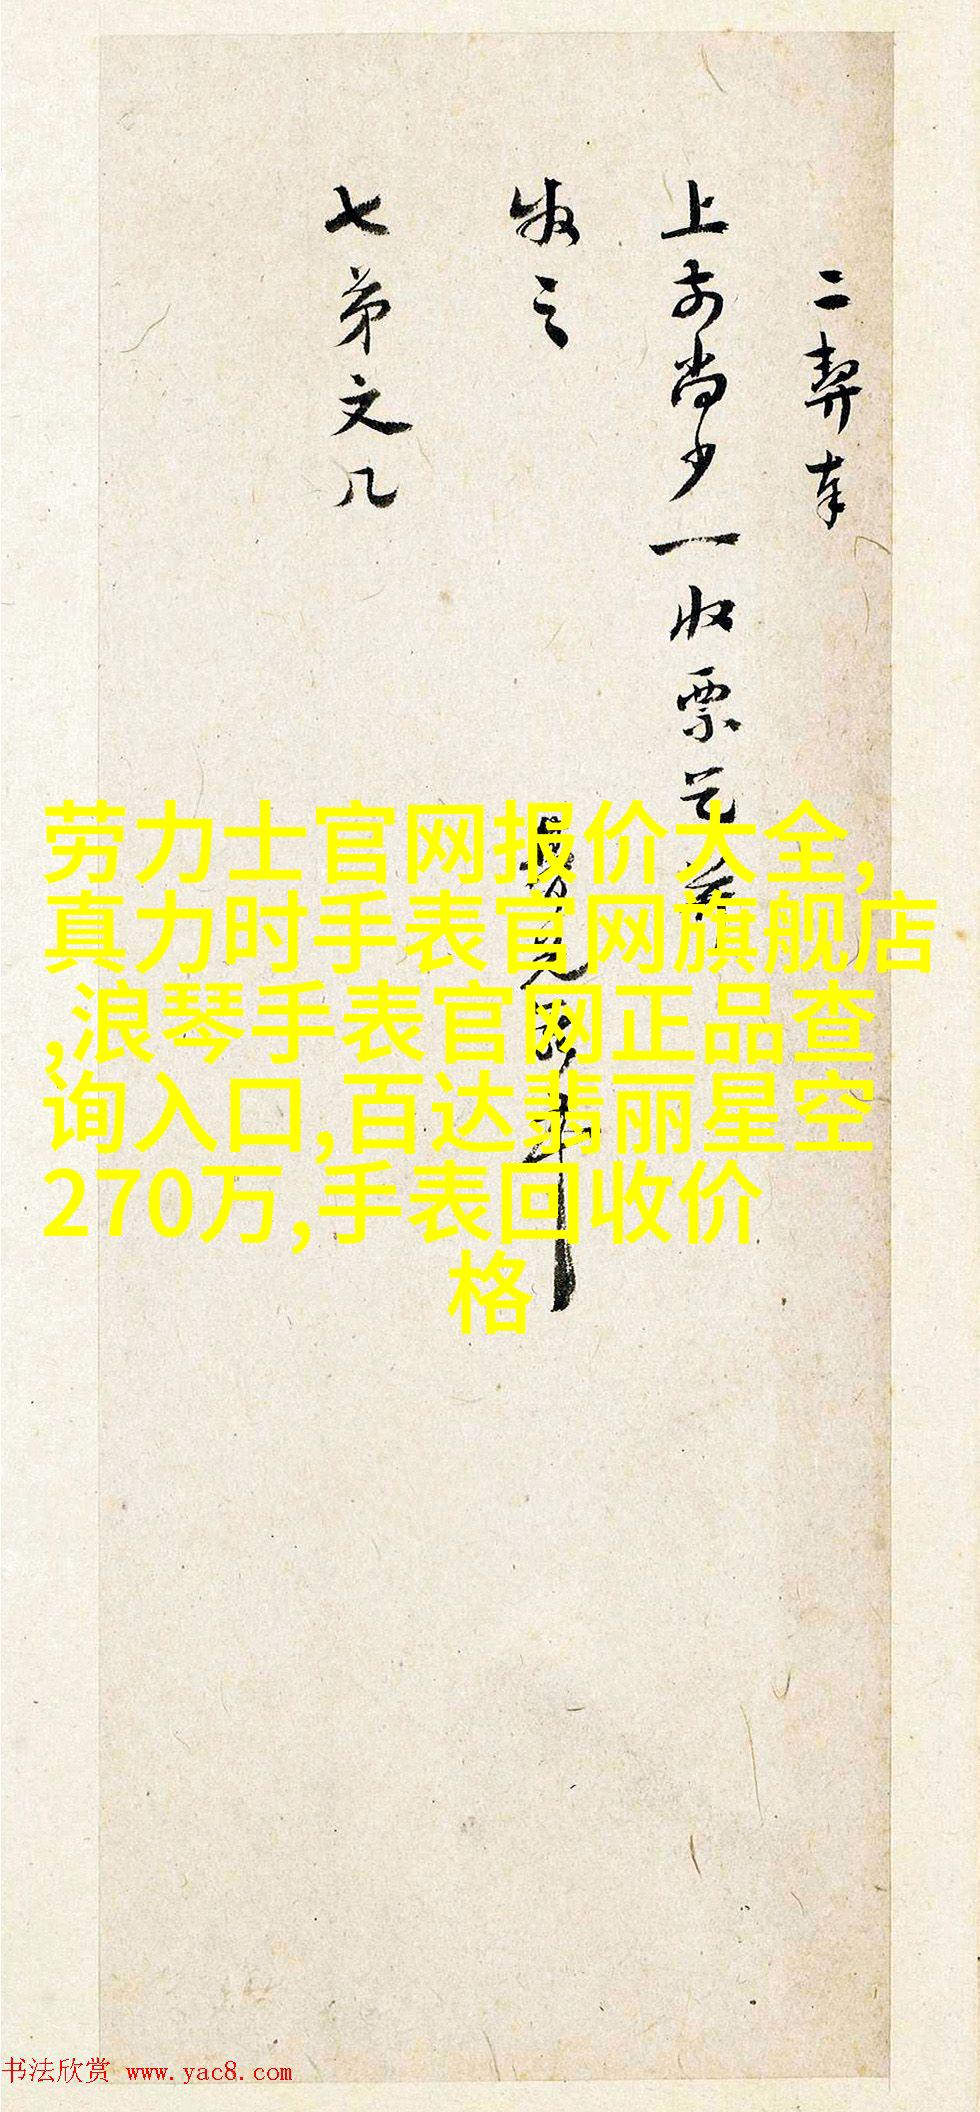 二契奉
上前尚少一收票乞并
收之
七弟文几
劳力士官网报价大全,
真力时手表官网旗舰店
,浪琴手表官网正品查
询入口,百达翡丽星空
270万,手表回收价
格
书法欣赏 www.yac8.com